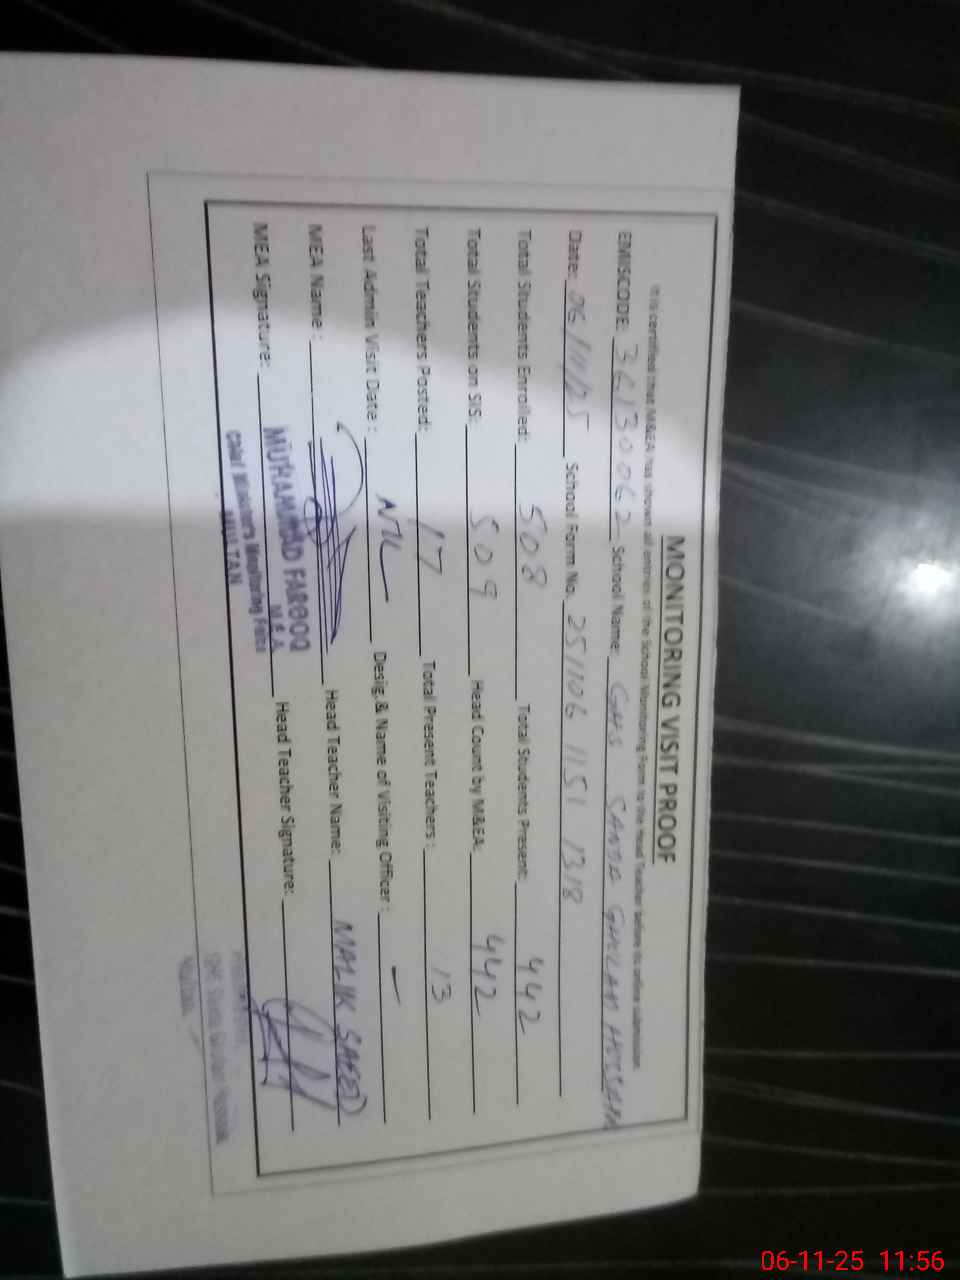 MONITORING VISIT PROOF
It is certified that M&EA has shown all entries of the School Monitoring Form to the Head Teacher before its online submission
EMISCODE: 36130062 School Name: GHS SANDA GHULAM HUSSAIN
Date: 06/11/25 School Form No. 251106 1151 1318
Total Students Enrolled: 508 Total Students Present: 442
Total Students on SIS: 509 Head Count by M&EA: 442
Total Teachers Posted: 17 Total Present Teachers: 13
Last Admin Visit Date: NIL Desig.& Name of Visiting Officer: —
MEA Name: Head Teacher Name: MALIK SAEED
MEA Signature: Head Teacher Signature:
MUHAMMAD FAROOQ
M.E.A
Chief Minister's Monitoring Force
MULTAN
06-11-25 11:56